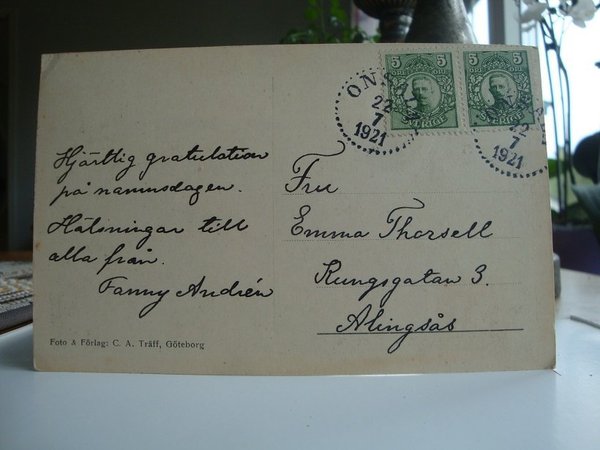 5 5 5 5
SVERIGE
ONSALA
22
7
1921
22
7
1921
Hjärtlig gratulation
på namnsdagen.
Hälsningar till
alla från.
Fanny Andrén
Fru
Emma Thorsell
Kungsgatan 3.
Alingsås
Foto & Förlag: C. A. Träff, Göteborg